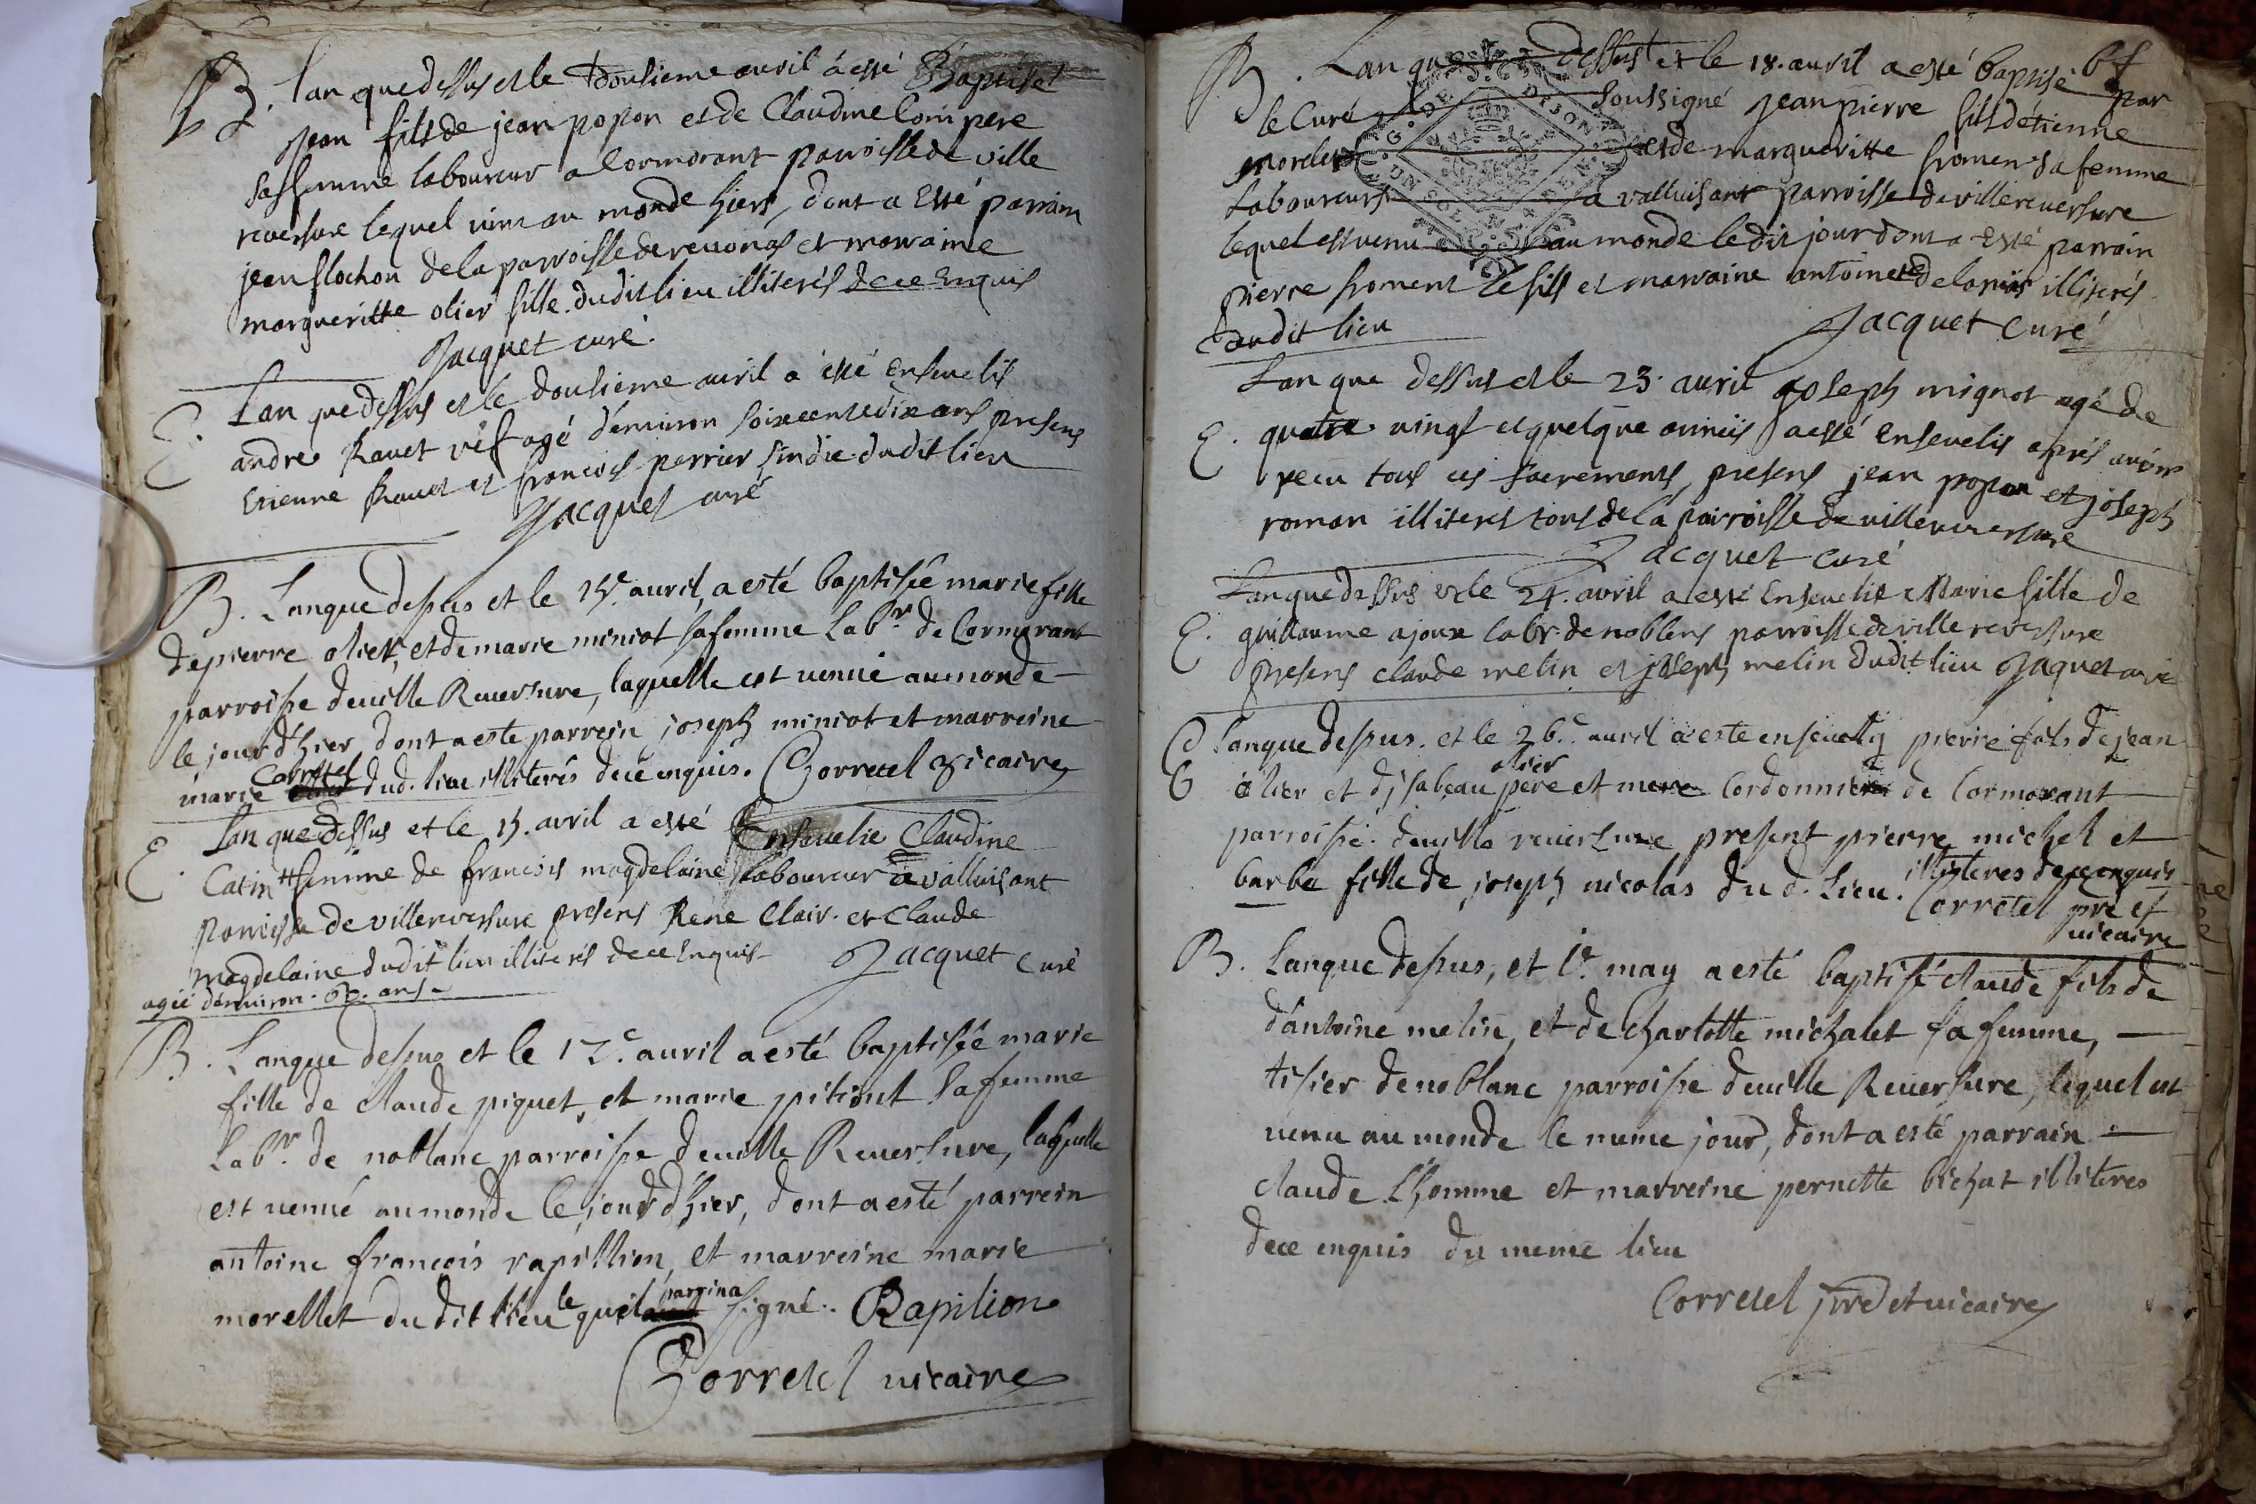 B. Lan que dessus et le dousieme avril à esté Baptisé
jean fils de jean popon et de Claudine Compere
sa femme laboureur a Cormorant parroisse de ville
reversure lequel vint au monde hiers, dont a Esté parrain
jean flochon de la parroisse de revonas et marraine
margueritte olier fille dudit lieu illiterés de ce Enquis
Jacquet curé.
E. Lan que dessus et le dousieme avril a esté Enseuelis
andre Ravet agé d'environ soixante dix ans presens
Etienne Ravet et francois perrier sindic dudit lieu
Jacquet curé
B. Lan que dessus et le 15e. auril, a esté baptisée marie fille
de pierre olier, et de marie miniot sa femme Labr. de Cormorant
parroisse de uille Reuersure, laquelle est uenüe au monde
le jour d'hier, dont a esté parrein joseph miniot et marreine
marie dud. lieu illiterés de ce enquis. Corretel Vicaire
E. Lan que dessus et le 15. avril a esté Enseuelie Claudine
Catin femme de francois magdelaine laboureur a valluisant
parroisse de villereversure presens René Clair et Claude
magdelaine dudit lieu illiterés de ce Enquis Jacquet Curé
agée d'enuiron ans
B. Lan que dessus et le 17e. auril a esté baptisée marie
fille de claude piquet, et marie pitiout sa femme
Labr. de noblanc parroisse de uille Reuersure, laquelle
est uenue au monde le jour d'hier, dont a esté parrein
antoine françois rapillion, et marreine marie
morellet du dit lieu le quel parrina signé. Rapilion
Corretel uicaire
B. Lan que dessus et le 18. avril a esté baptisé par
le Curé soussigné jean pierre fils détienne
morelet et de margueritte fromen sa femme
Laboureurs a valluisant parroisse de villereversure
lequel est venu au monde le dit jour dont a Esté parrain
pierre froment le fils et marraine antoinette illiterés
dudit lieu Jacquet Curé
Lan que dessus et le 23. avril joseph mignot agé de
E. quatre vingt et quelque anneés a esté Enseuelis aprés avoir
recu tous ces sacrements, presens jean popon et joseph
roman illiteres tous de la parroisse de villereversure
Jacquet Curé
Lan que dessus et le 24. avril a esté Enseuelie Marie fille de
E. guillaume ajoux labr. de noblens parroisse de villereversure
presens claude melin et joseph melin dudit lieu Jaquet curé
Lan que dessus. et le 26e. auril a este enseuelly pierre fils de jean
E olier et d'isabeau olier pere et mere Cordonnier de Cormorant
parroisse de uille reuersure present pierre michel et
barbe fille de joseph nicolas du d. Lieu. illiteres de ce enquis
Corretel pre et
uicaire
B. Lan que dessus, et 1er. may a esté baptisé claude fils de
d'antoine melin, et de charlotte michalet sa femme,
tisier de noblanc parroisse de uille Reuersure, lequel est
uenu au monde le meme jour, dont a esté parrain
claude Lhomme et marreine pernette bichat illiteres
de ce enquis du meme lieu
Corretel pre et uicaire